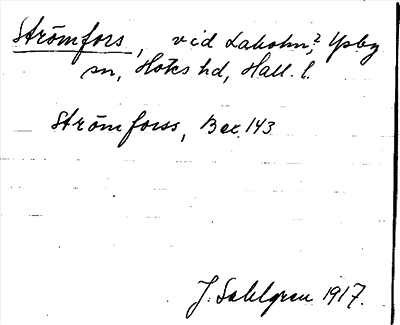 Strömfors, vid Laholm,? Ysby
sn, Höks hd, Hall. l.
Strömforss, Bex. 143
J. Sahlgren 1917.